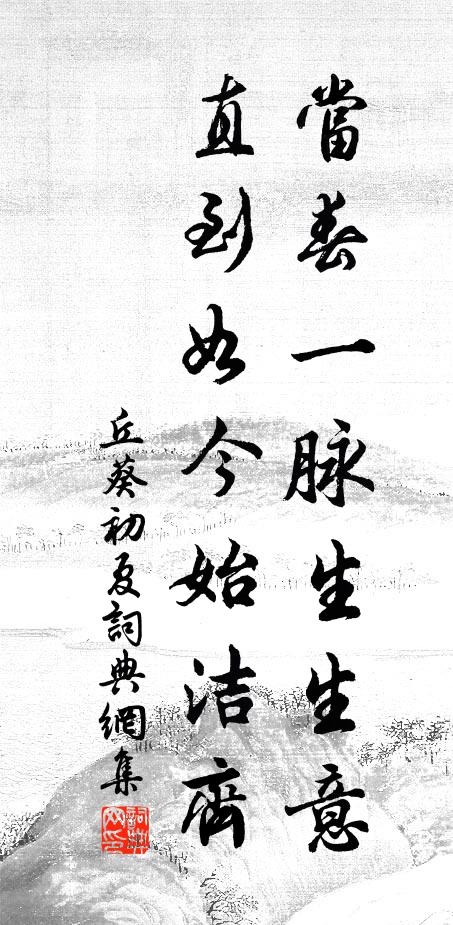 當春一脉生生意
直到如今始洁齊
丘葵初夏詞典網集